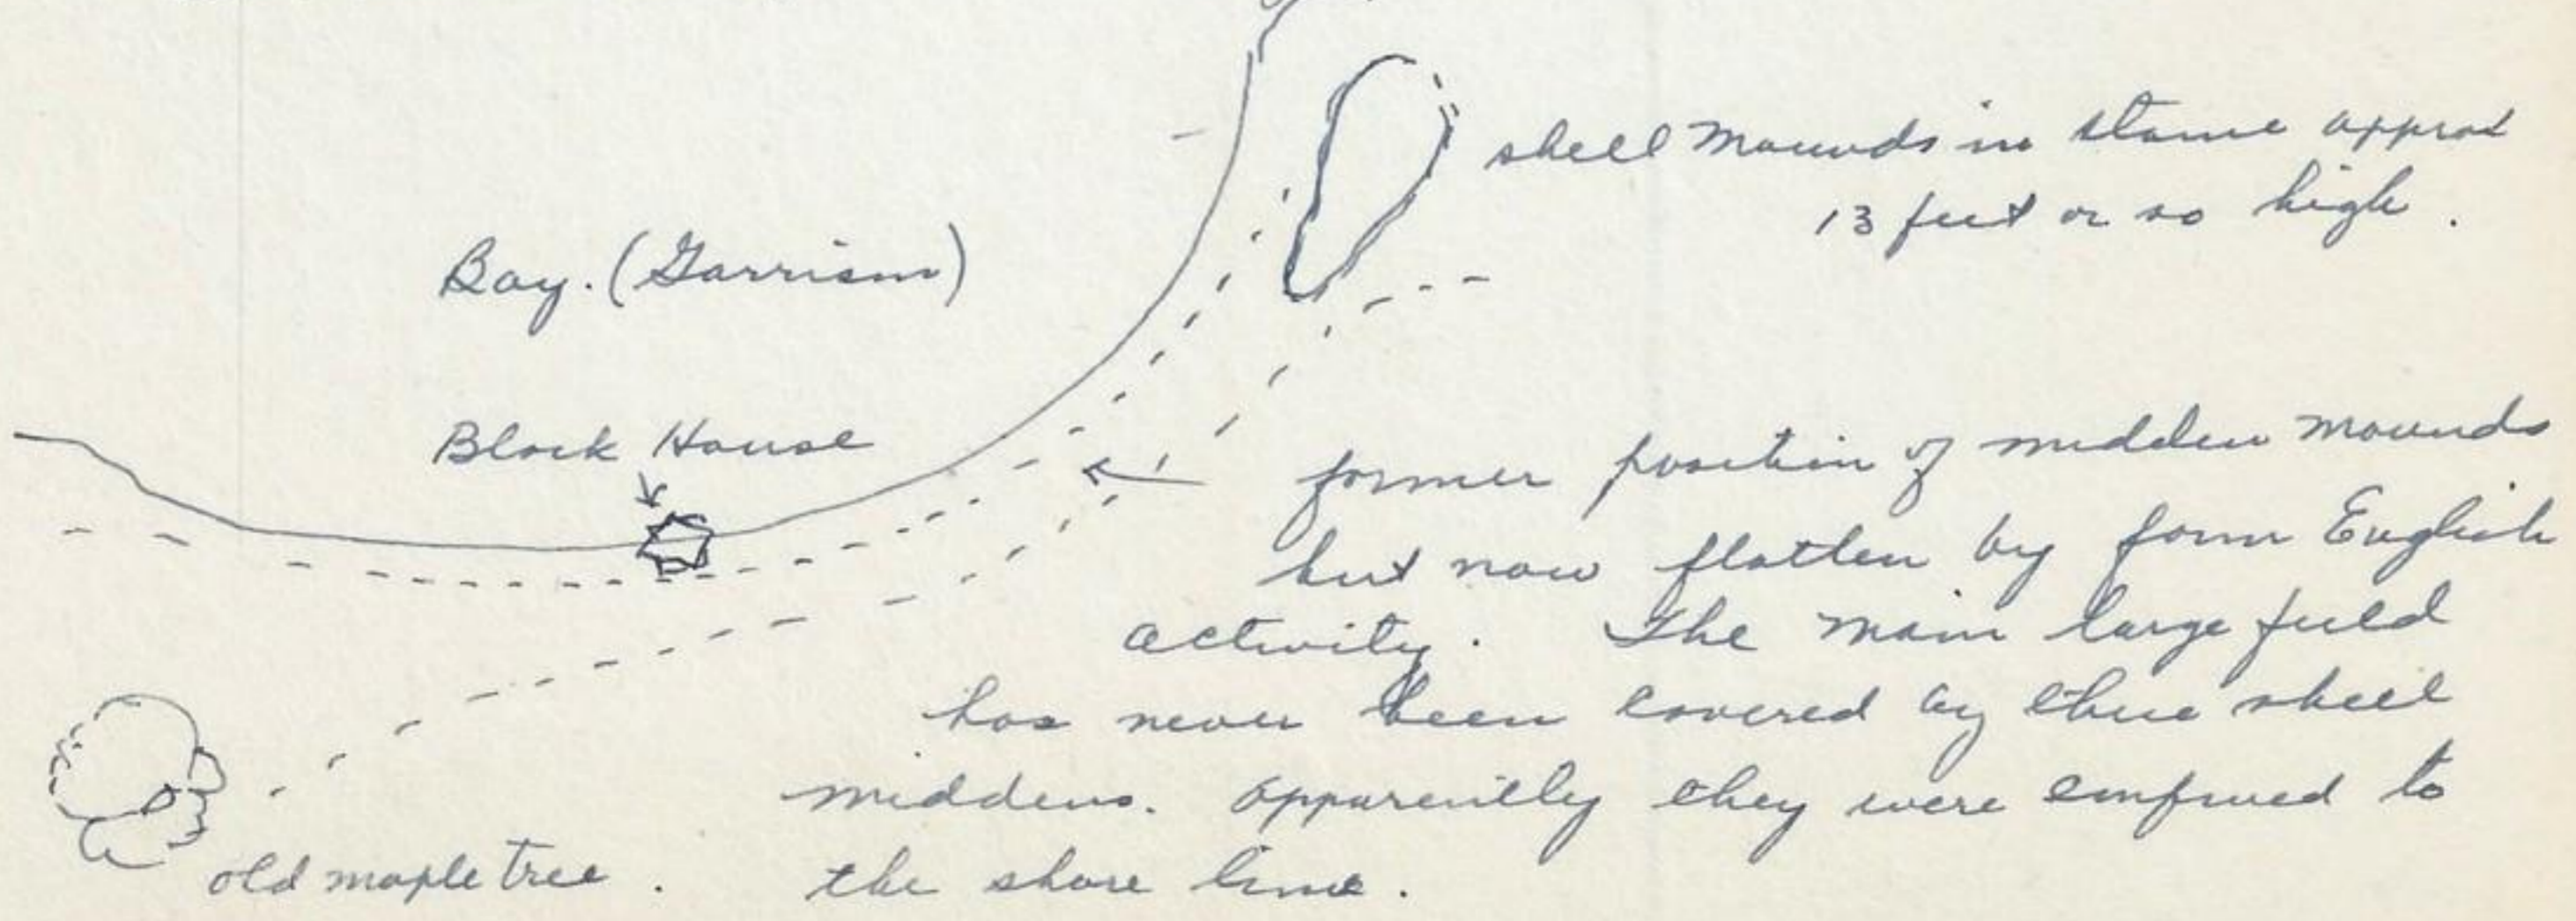 shell mounds in approx
13 feet or so high.
Bay. (Garrison)
Block House
former position of midden mounds
but now flatten by form English
activity. The main large field
has never been covered by these shell
middens. apparently they were confined to
the shore line.
old maple tree.